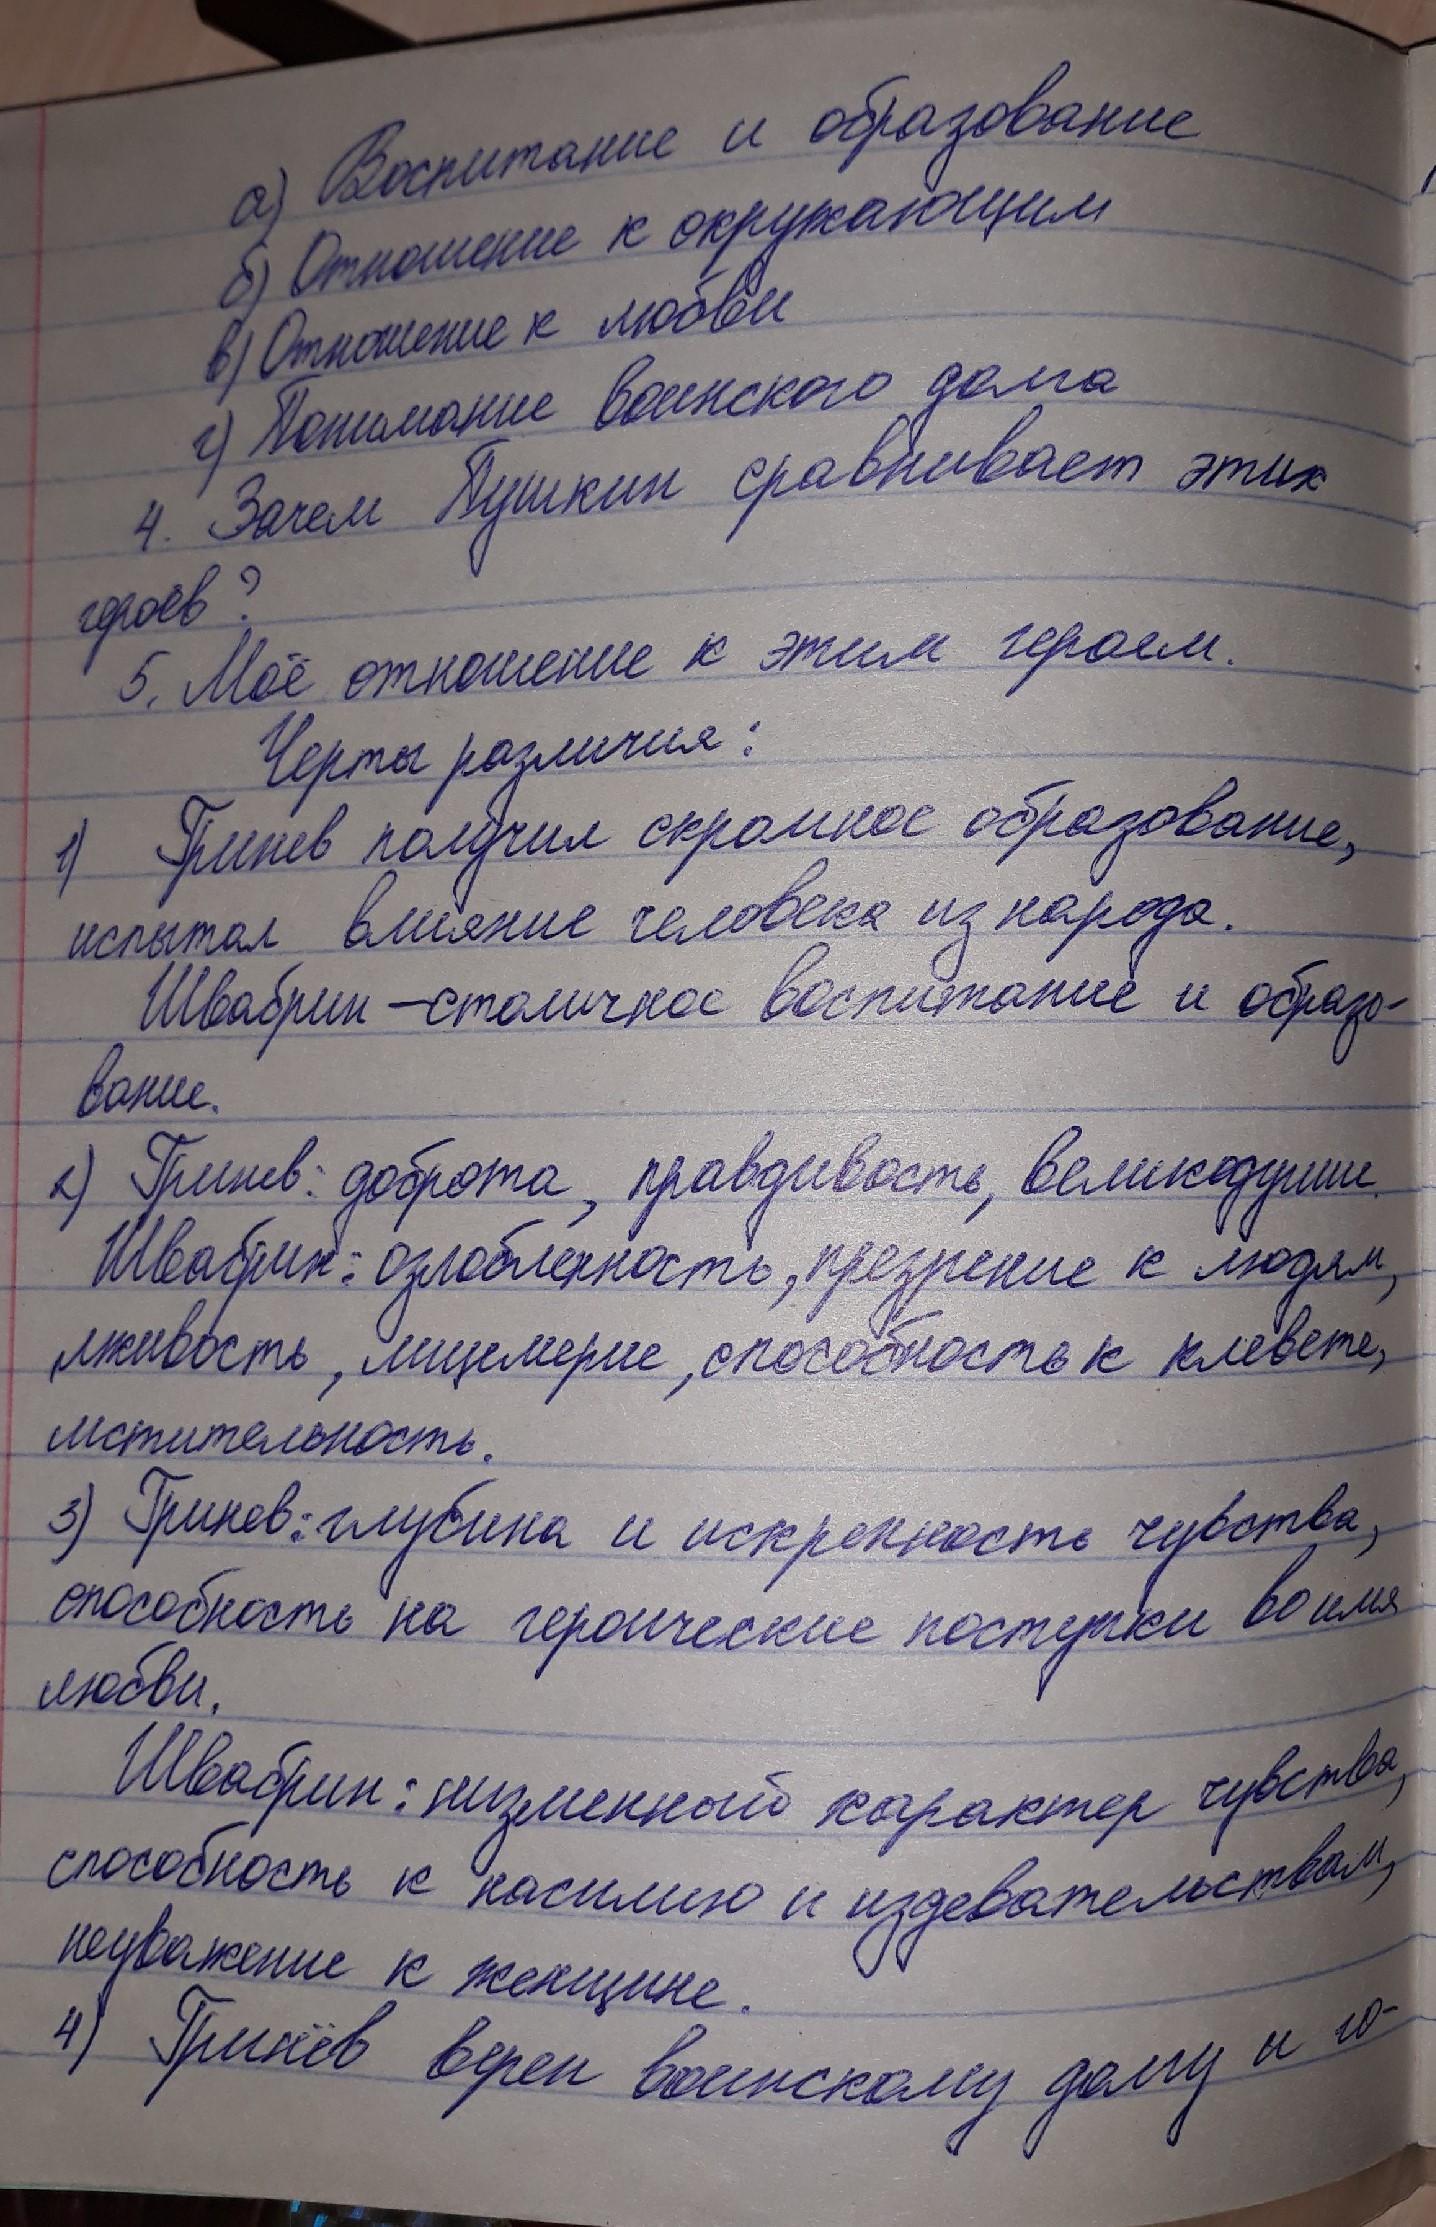 а) Воспитание и образование
б) Отношение к окружающим
в) Отношение к любви
г) Понимание воинского долга
4. Зачем Пушкин сравнивает этих
героев?
5. Моё отношение к этим героем.
Черты различия:
1) Гринев получил скромное образование,
испытал влияние человека из народа.
Швабрин – столичное воспитание и образо-
вание.
2) Гринев: доброта, правдивость, великодушие.
Швабрин: озлобленность, презрение к людям,
лживость, лицемерие, способность к клевете,
мстительность.
3) Гринев: глубина и искренность чувства,
способность на героические поступки во имя
любви.
Швабрин: низменный характер чувства,
способность к насилию и издевательствам,
неуважение к женщине.
4) Гринёв верен воинскому долгу и го-